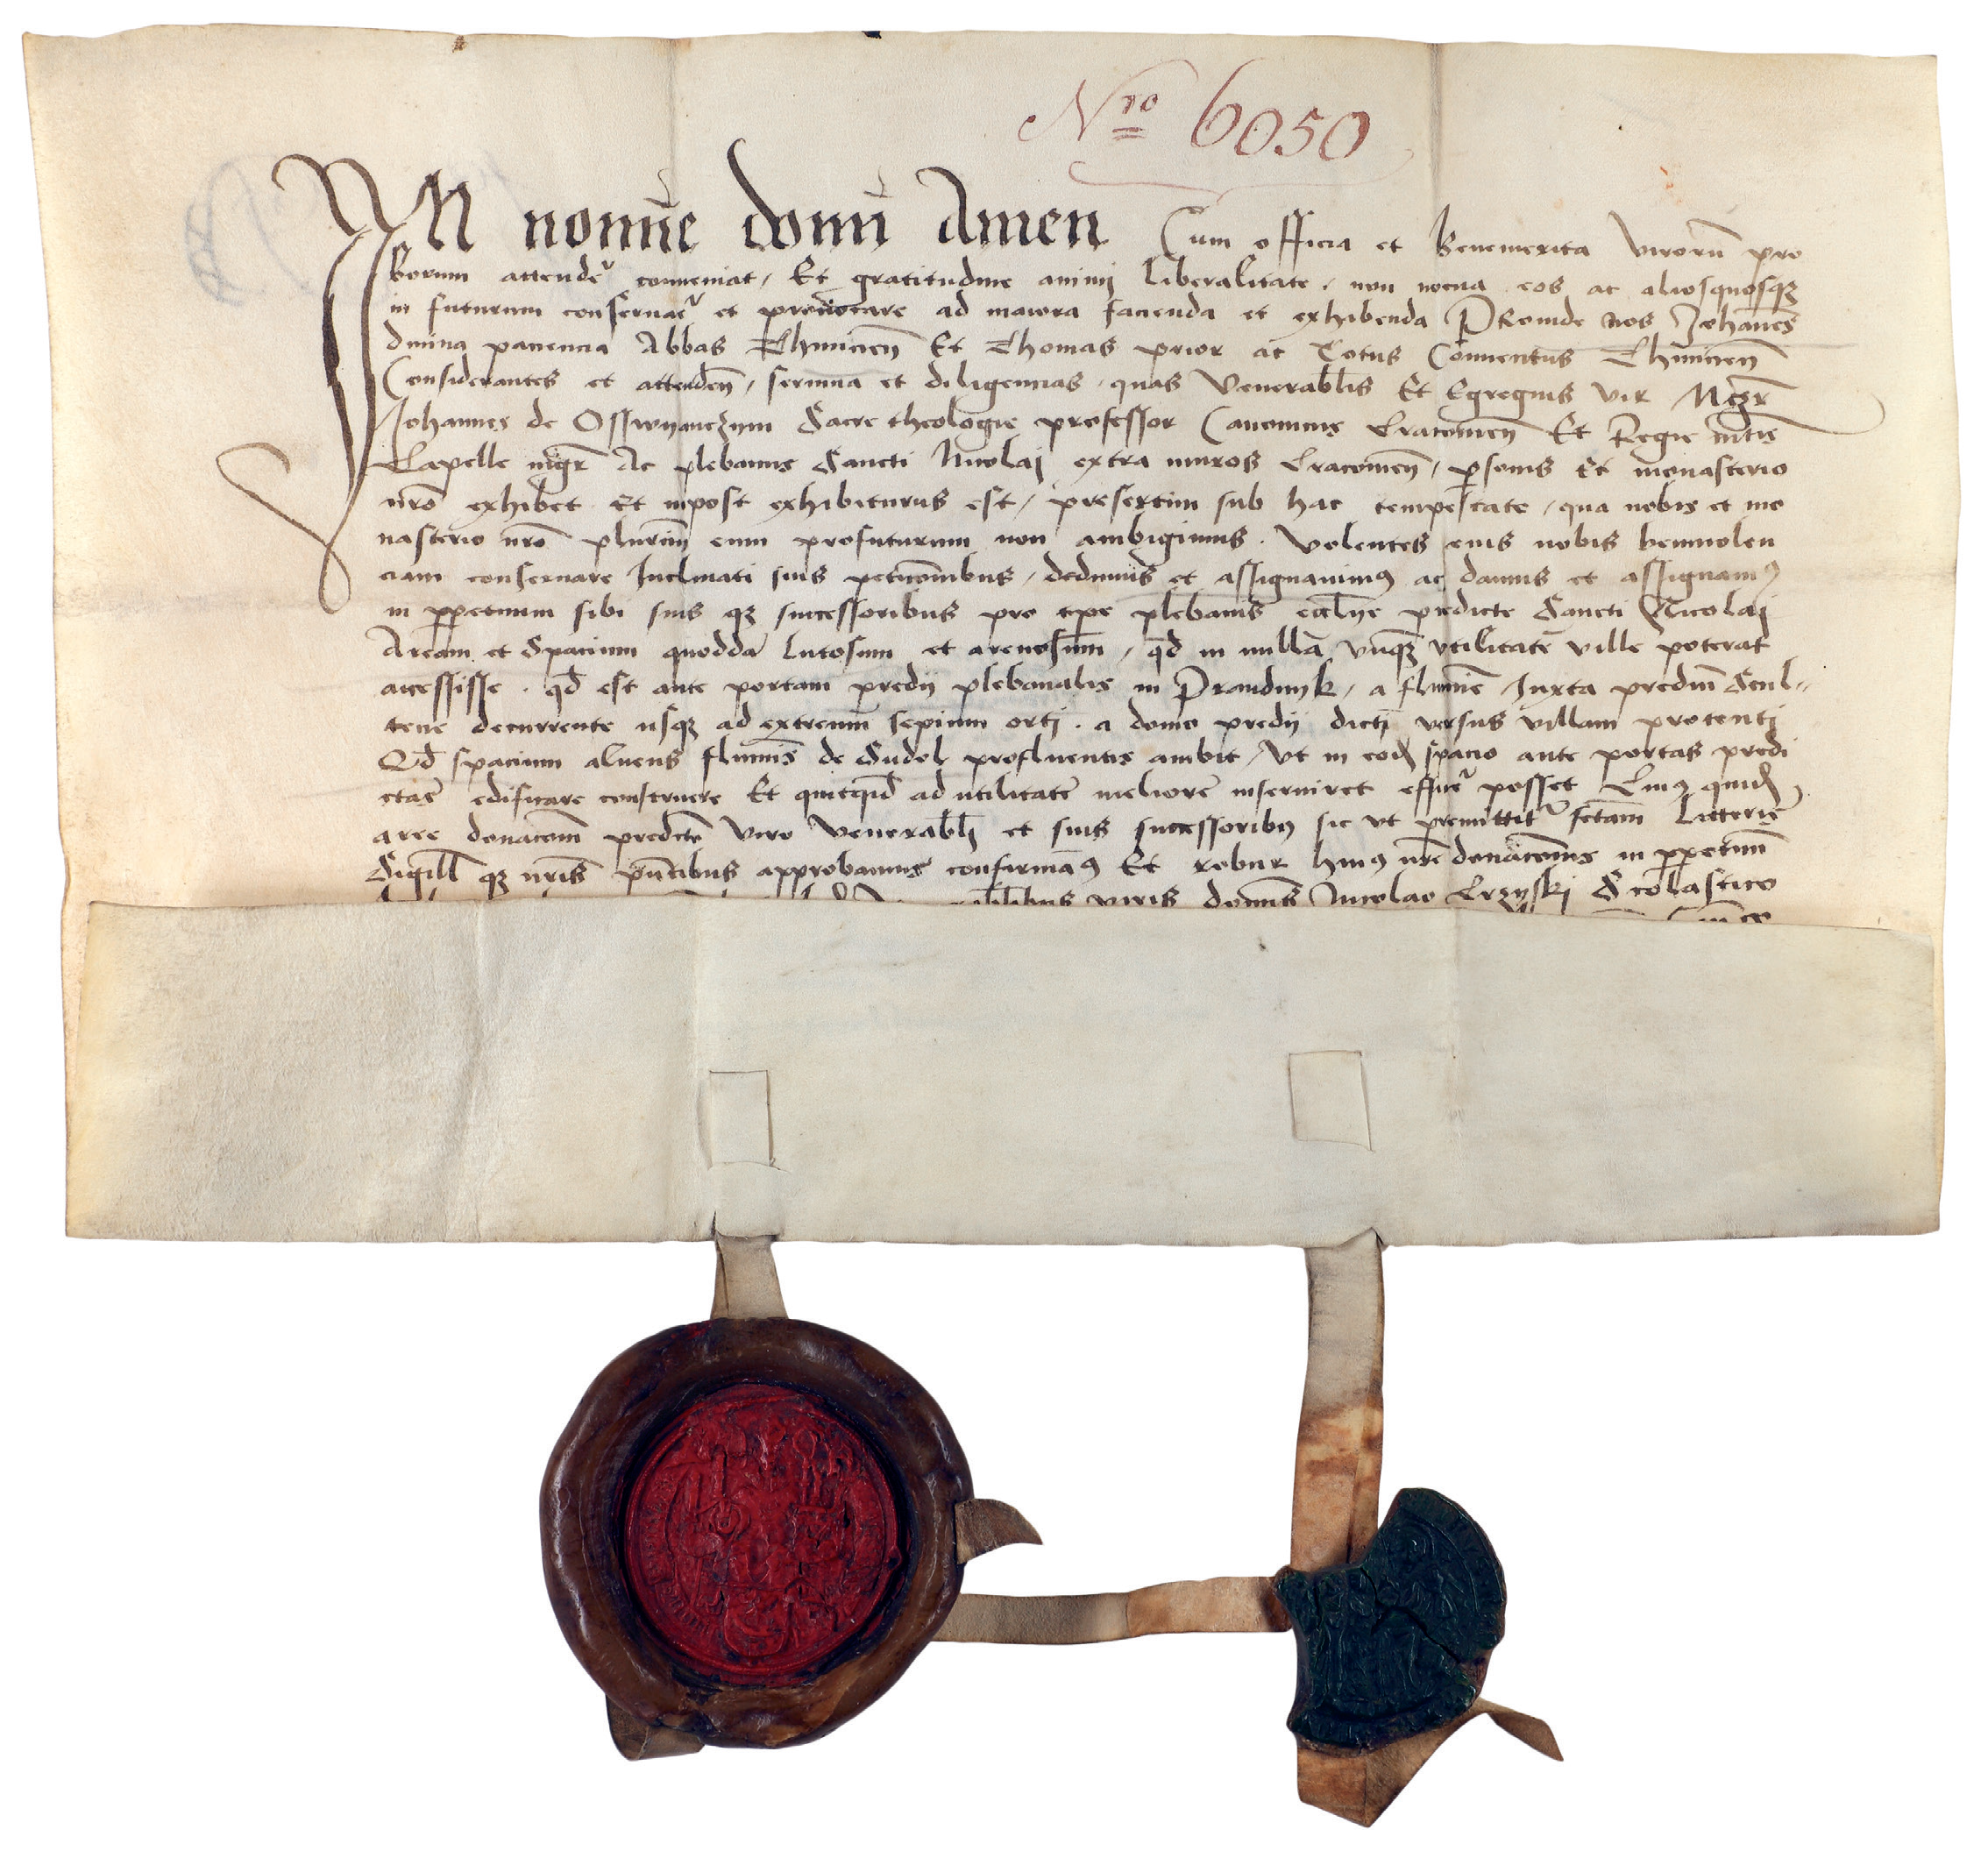 Nro 6050
IN nomīe domī Amen Cum officia et benemerita virorū pro
borum attendere conveniat, Et gratitudine animi liberalitate, non nocua eos ac aliosquosqꝫ
in futurum conservare et provocare ad maiora facienda et exhibenda PRoinde Nos Johannes
divina paciencia Abbas Thinicien̄ Et Thomas prior ac Totus Conventus Thinicien̄
Considerantes et attenden̄, servicia et diligencias, quas Venerabilis Et Egregius vir Mgr̄
Johannes de Osswyanczym Sacre theologie professor Canonicus Cracovien̄ Et Regie mtis
Capelle mgr̄ Ac plebanus Sancti Nicolai extra muros Cracovien̄, personis Et monasterio
nr̄o exhibet Et inpost exhibiturus est, presertim sub hac tempestate, qua nobis et mo
nasterio nr̄o plurimū eum profuturum non ambigimus. Volentes eius nobis benivolen
ciam conservare Inclinati suis peticōnibus, dedimus et assignavimꝰ ac damus et assignamꝰ
in ꝑpetuum sibi suis qꝫ successoribus pro tpe plebanis eccl̄ie predicte Sancti Nicolai
Aream et Spacium quoddā lutosum et arenosum, qd̄ in nullā unqꝫ utilitatē ville poterat
accessisse. qd̄ est ante portam predii plebanalis in Prandnyk, a flumīe Iuxta prediū Scul-
tecie decurrente usqꝫ ad extremū sepium orti. a domo predii dicti versus villam protenti
Qd̄ spacium alveus fluminis de Sudol profluentis ambit, Ut in eodē spacio ante portas predi
ctas edificare construere Et quitquid ad utilitatē meliorē inserviret efficere posset Cuiꝰ quidē
aree donacōem predictō viro Venerabili et suis successoribꝰ sic ut premittitur fctam Litteris
Sigill̄ qꝫ nris̄ p̄ntibus approbamus confirmamꝰ Et robur huiꝰ nr̄e donacōnis in ꝑpetuū
viris domīs Nicolao Crzyski Scolastico